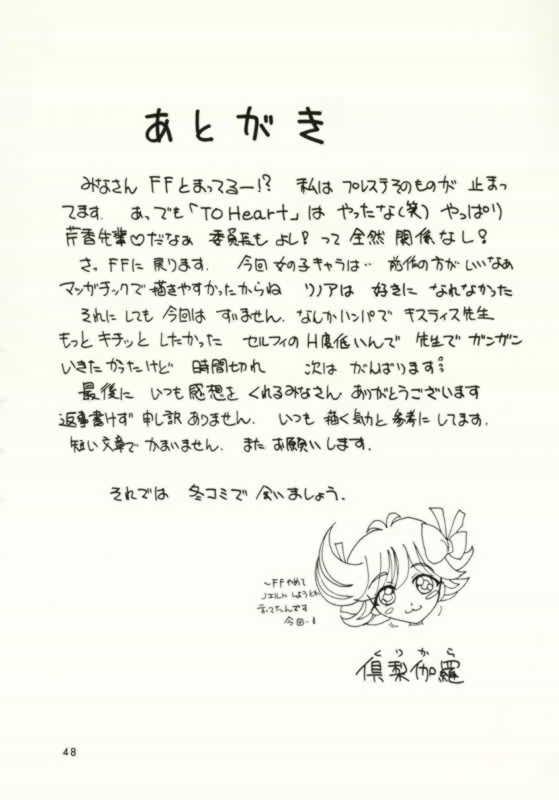 あとがき
みなさん FFとまってるー!? 私は プレステそのものが 止まっ
てます. あ、でも「TO Heart」は やったな(笑) やっぱり
芹香先輩♡だなぁ 委員長も よし? って 全然 関係なし?
さ。FFに戻ります. 今回 女の子キャラは‥ 前作の方がいいなあ
マンガチックで描きやすかったからね リノアは 好きに なれなかった
それにしても今回は すいません. なんかハンパで キスティス先生
もっと キチッと したかった セルフィのH度低いんで 先生で ガンガン
いきたかったけど 時間切れ 次は がんばります
最後に いつも感想を くれるみなさん ありがとうございます
返事書けず 申し訳ありません. いつも 描く気力と 参考にしてます.
短い文章で かまいません. また お願いします.
それでは 冬コミで 会いましょう.
〜FFやめて
ノエルに しようと
言ってたんです
今回
くりから
倶梨伽羅
48